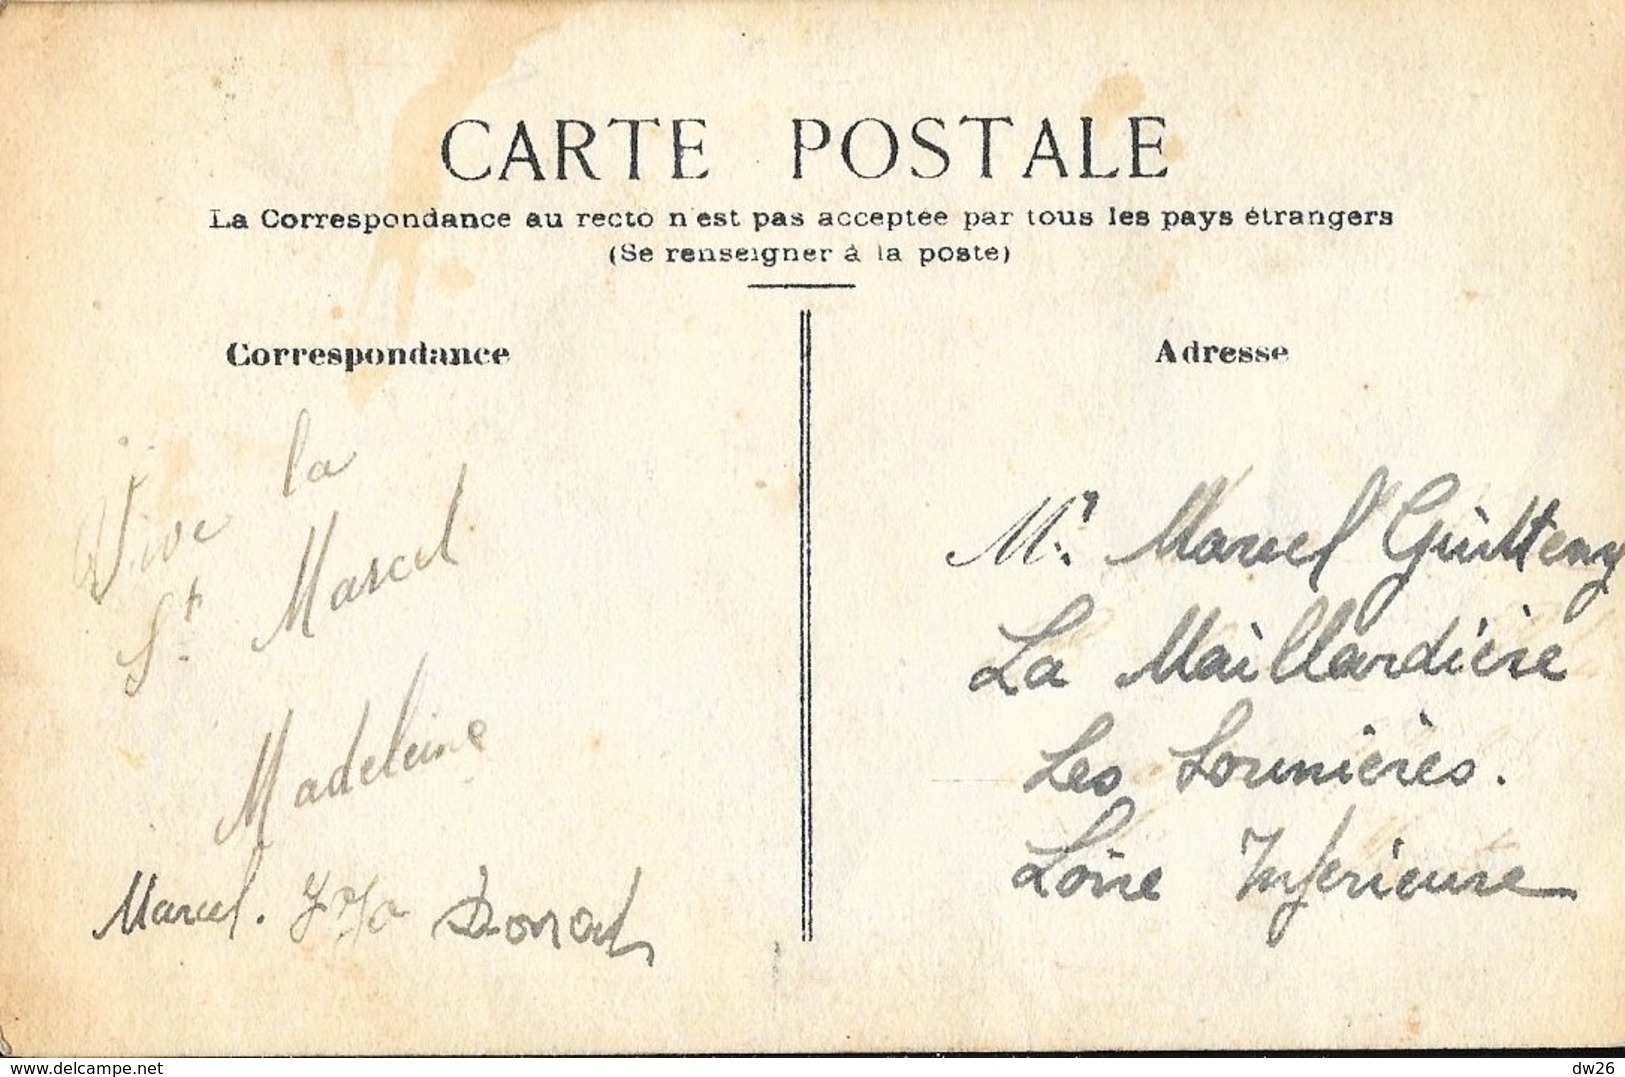 CARTE POSTALE
La Correspondance au recto n'est pas acceptée par tous les pays étrangers
(Se renseigner à la poste)
Correspondance
Vive la
St. Marcel
Madeleine
Marcel. Yoyo Donat
Adresse
Mr. Marcel Guitteny
La Maillardière
Les Sorinières.
Loire Inférieure
www.delcampe.net
dw26